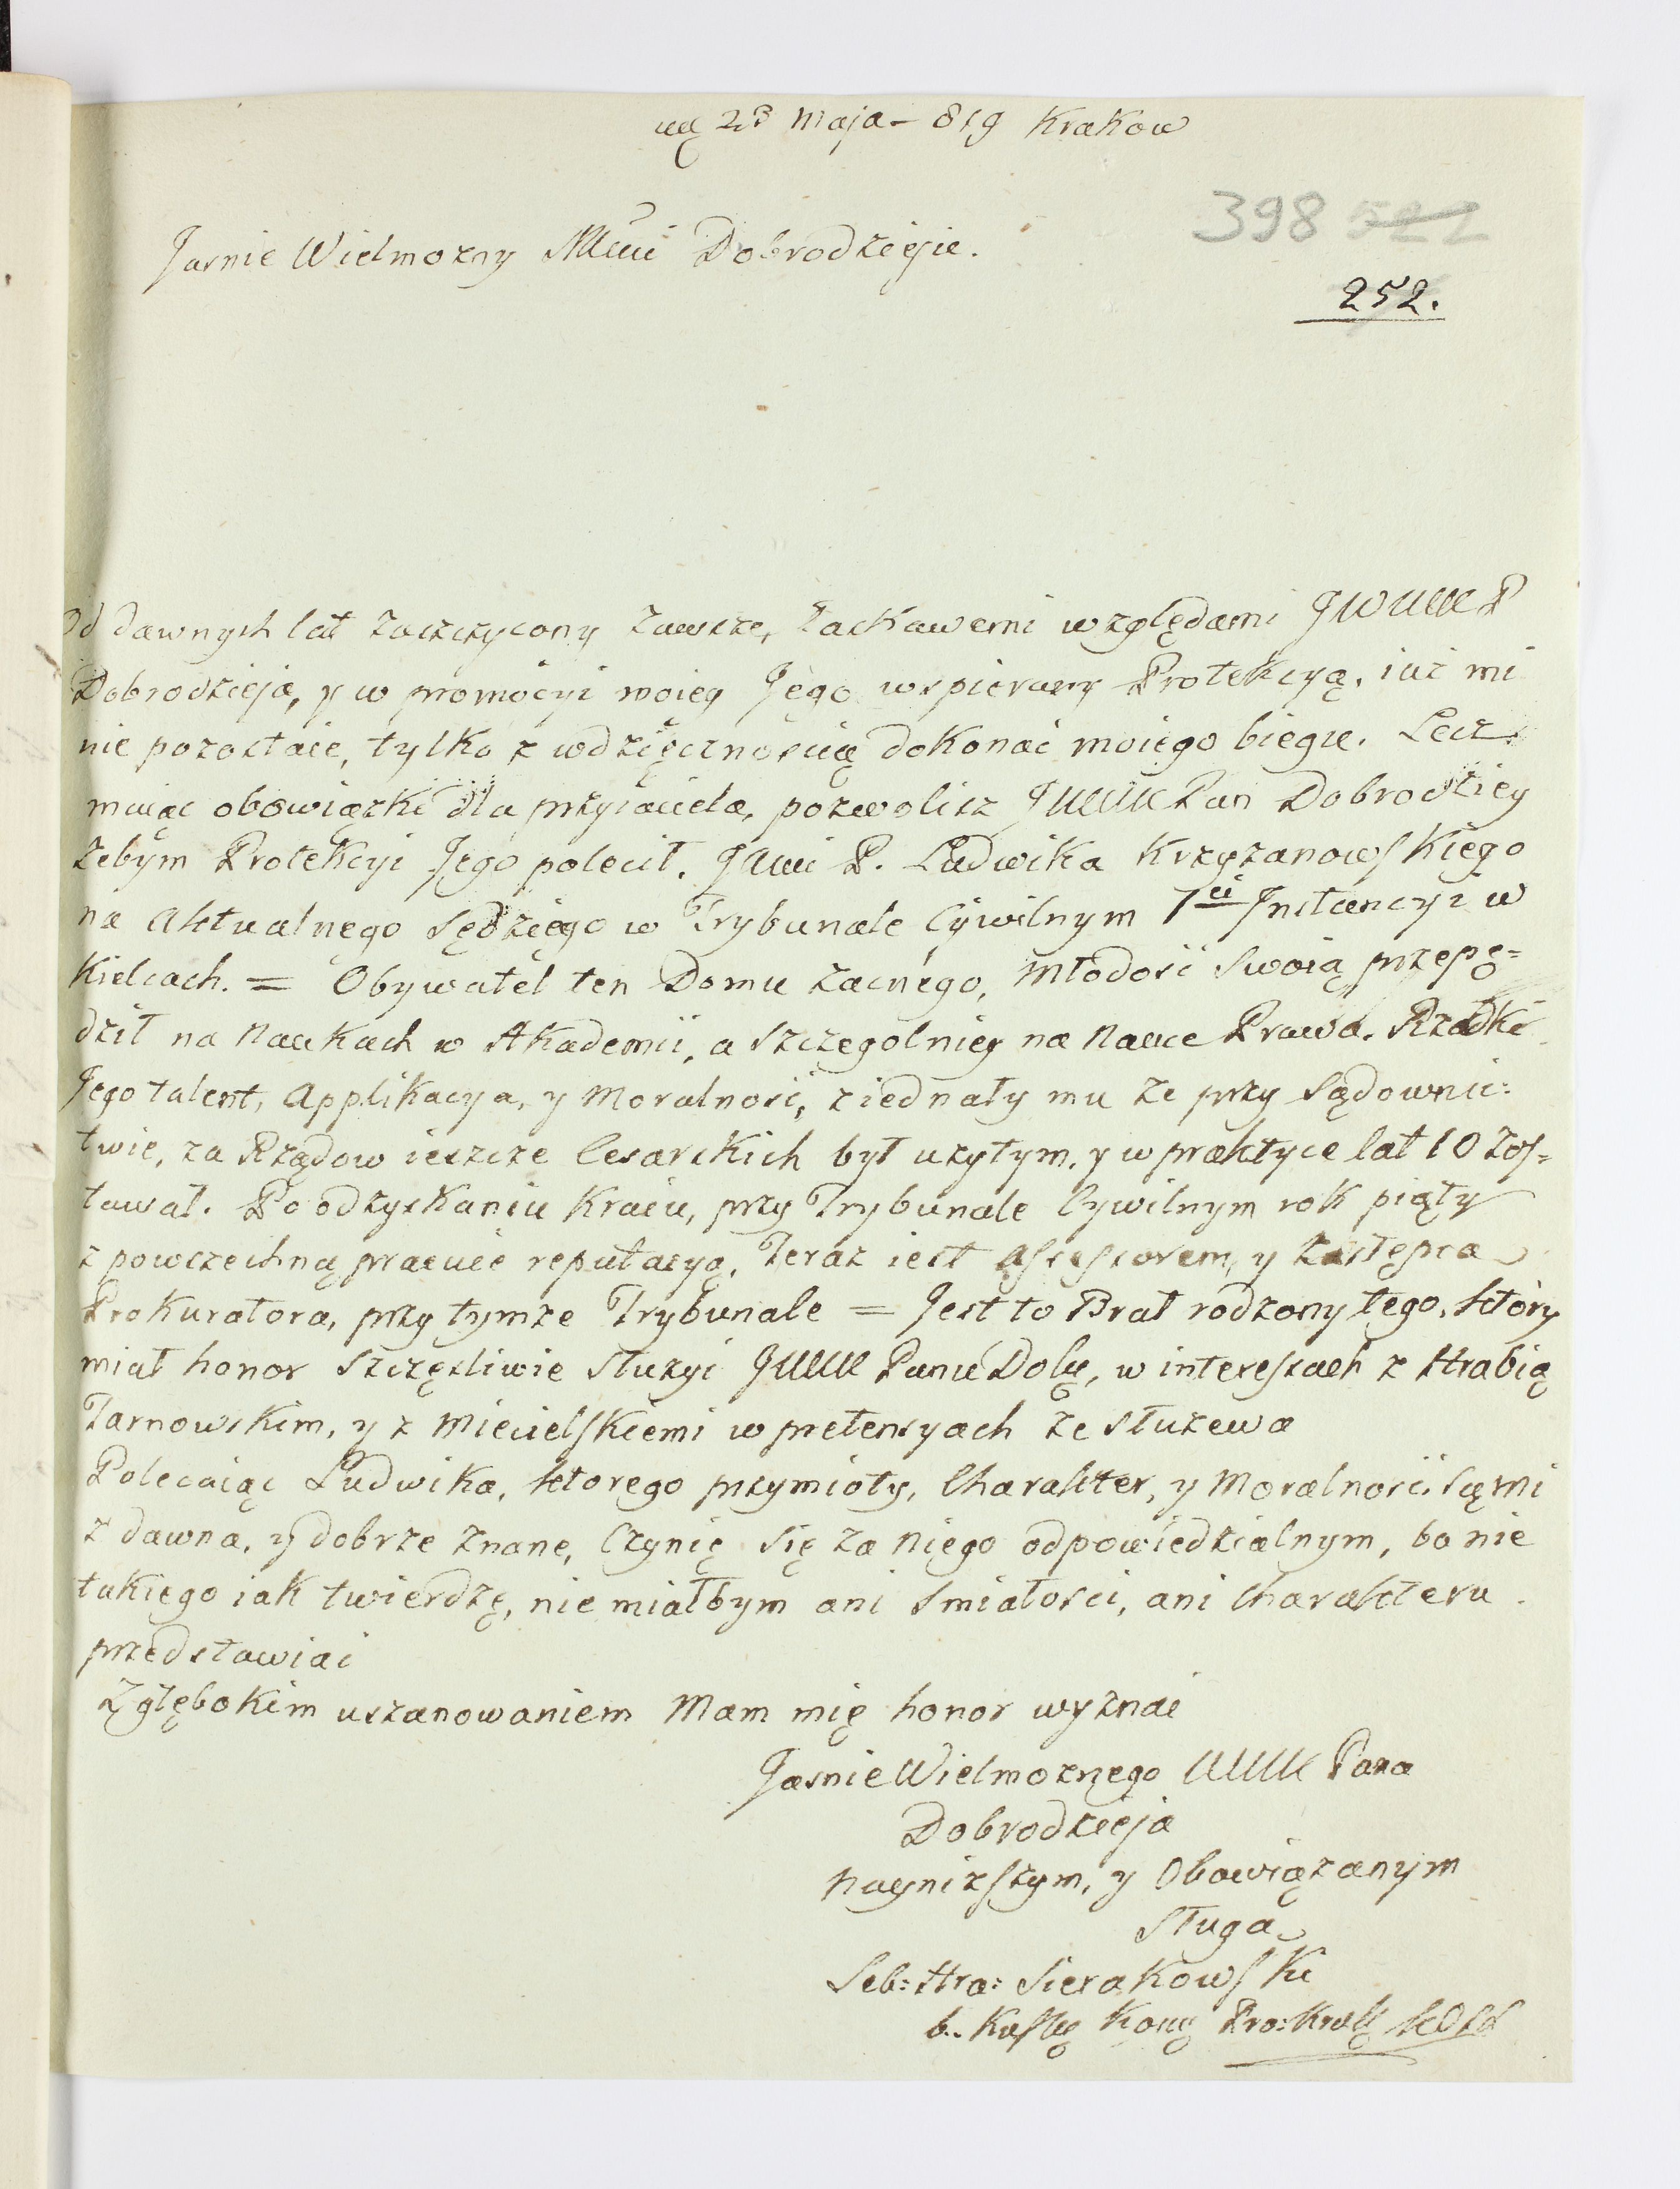 23 Maja – 819 Krakow
398 522
Jasnie Wielmozny Mci Dobrodzieju.
252.
Od dawnych lat zaszczycony zawsze, łaskawemi względami JW
Dobrodzieja, y w promocyi moiey Jego wspierany Protekcyą, iuż mi
nie pozostaie, tylko z wdzięcznością dokonać moiego biegu. Lecz
maiąc obowiązki dla przyiaciela, pozwolisz Pan Dobrodziey
żebym Protekcyi Jego polecił. P. Ludwika Krzyzanowskiego
na Aktualnego Sędziego w Trybunale Cywilnym 1ei Jnstancyi w
Kielcach. = Obywatel ten Domu zacnego, Młodość swoią przepę=
dził na Naukach w Akademii, a szczegolniey na Nauce Prawa. Rzadki
Jego talent, Applikacya, y Moralność, ziednały mu że przy Sądownic:
twie, za Rządow ieszcze Cesarskich był użytym, y w praktyce lat 10 zos=
tawał. Po odzyskaniu Kraiu, przy Trybunale Cywilnym rok piąty
z powszechną pracuie reputacyą, Teraz iest Assessorem, y Zastępca
Prokuratora, przy tymże Trybunale = Jest to Brat rodzony tego, ktory
miał honor szczęsliwie służyć Panu Dobę, w interessach z Hrabią
Tarnowskim, y z Micielskiemi w pretensyach ze Służewa
Polecaiąc Ludwika, ktorego przymioty, Charakter, y Moralność są mi
z dawna, y dobrze znane, Czynię się za niego odpowiedzialnym, bo nie
takiego iak twierdzę, nie miałbym ani smiałości, ani Charakteru
przedstawiać
Z głębokim uszanowaniem Mam mię honor wyznać
Jasnie Wielmoznego Pana
Dobrodzieja
Nayniższym, y Obowiązanym
Sługa
Seb: Hra: Sierakowski
b. Kor